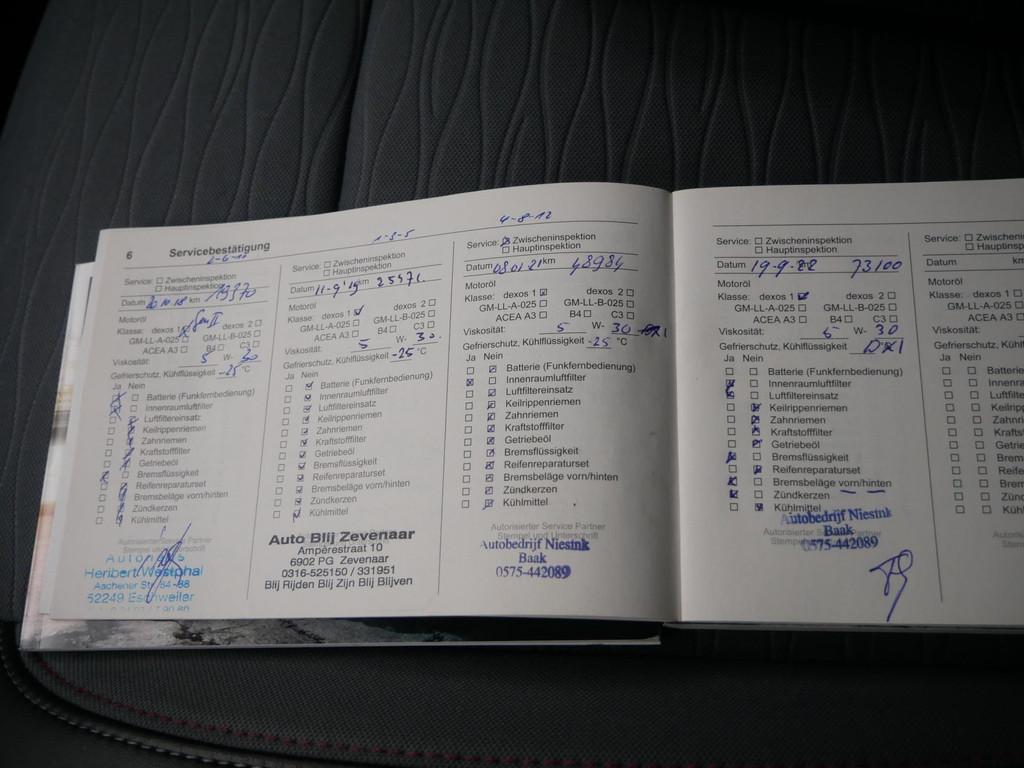 6 Servicebestätigung
Service: ☐ Zwischeninspektion
☐ Hauptinspektion
Datum 20.10.18 km 19370
Motoröl
Klasse: dexos 1 Gen II dexos 2 ☐
GM-LL-A-025 ☐ GM-LL-B-025 ☐
ACEA A3 ☐ B4 ☐ C3 ☐
Viskosität: 5 W- 30
Gefrierschutz, Kühlflüssigkeit -25 °C
Ja Nein
Batterie (Funkfernbedienung)
Innenraumluftfilter
Luftfiltereinsatz
Keilrippenriemen
Zahnriemen
Kraftstofffilter
Getriebeöl
Bremsflüssigkeit
Reifenreparaturset
Bremsbeläge vorn/hinten
Zündkerzen
Kühlmittel
Autorisierter Service Partner
Stempel und Unterschrift
Autohaus
Heribert Westphal
Aachener Str. 84-88
52249 Eschweiler
1-3-5
Service: ☐ Zwischeninspektion
☐ Hauptinspektion
Datum 11-9'19 km 25571.
Motoröl
Klasse: dexos 1 ☑ dexos 2 ☐
GM-LL-A-025 ☐ GM-LL-B-025 ☐
ACEA A3 ☐ B4 ☐ C3 ☐
Viskosität: 5 W- 30.
Gefrierschutz, Kühlflüssigkeit -25 °C
Ja Nein
Batterie (Funkfernbedienung)
Innenraumluftfilter
Luftfiltereinsatz
Keilrippenriemen
Zahnriemen
Kraftstofffilter
Getriebeöl
Bremsflüssigkeit
Reifenreparaturset
Bremsbeläge vorn/hinten
Zündkerzen
Kühlmittel
Auto Blij Zevenaar
Ampèrestraat 10
6902 PG Zevenaar
0316-525150 / 331951
Blij Rijden Blij Zijn Blij Blijven
4-8-12
Service: ☒ Zwischeninspektion
☐ Hauptinspektion
Datum 08 01 21 km 48984
Motoröl
Klasse: dexos 1 ☑ dexos 2 ☐
GM-LL-A-025 ☐ GM-LL-B-025 ☐
ACEA A3 ☐ B4 ☐ C3 ☐
Viskosität: 5 W- 30
Gefrierschutz, Kühlflüssigkeit -25 °C
Ja Nein
Batterie (Funkfernbedienung)
Innenraumluftfilter
Luftfiltereinsatz
Keilrippenriemen
Zahnriemen
Kraftstofffilter
Getriebeöl
Bremsflüssigkeit
Reifenreparaturset
Bremsbeläge vorn/hinten
Zündkerzen
Kühlmittel
Autorisierter Service Partner
Stempel und Unterschrift
Autobedrijf Niesink
Baak
0575-442089
Service: ☐ Zwischeninspektion
☐ Hauptinspektion
Datum 19-9-22 km 73100
Motoröl
Klasse: dexos 1 ☑ dexos 2 ☐
GM-LL-A-025 ☐ GM-LL-B-025 ☐
ACEA A3 ☐ B4 ☐ C3 ☐
Viskosität: 5 W- 30
Gefrierschutz, Kühlflüssigkeit DX1
Ja Nein
Batterie (Funkfernbedienung)
Innenraumluftfilter
Luftfiltereinsatz
Keilrippenriemen
Zahnriemen
Kraftstofffilter
Getriebeöl
Bremsflüssigkeit
Reifenreparaturset
Bremsbeläge vorn/hinten
Zündkerzen
Kühlmittel
Autobedrijf Niesink
Baak
0575-442089
Service: ☐ Zwischeninsp
☐ Hauptinsp
Datum km
Motoröl
Klasse: dexos 1 ☐
GM-LL-A-025 ☐
ACEA A3 ☐
Viskosität:
Gefrierschutz, Kühlflüs
Ja Nein
Batterie
Innenra
Luftfilte
Keilripp
Zahnri
Krafts
Getri
Brem
Reife
Bren
Zün
Kühl